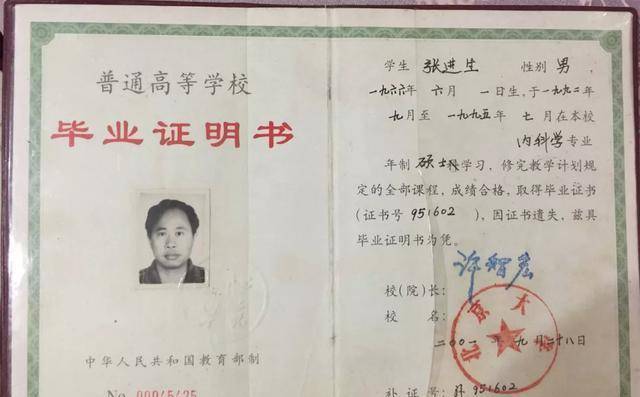 普通高等学校
毕业证明书
中华人民共和国教育部制
学生 张进生 性别 男
一九六六年 六月 一日生，于一九九二年
九月至 一九九五年 七月在本校
内科学专业
年制 硕士科学习，修完教学计划规
定的全部课程，成绩合格，取得毕业证书
(证书号 951602)，因证书遗失，兹具
毕业证明书为凭。
校(院)长： 许智宏
校 名：
北京大学
二〇〇一年 九月二十八日
补证号：补 951602